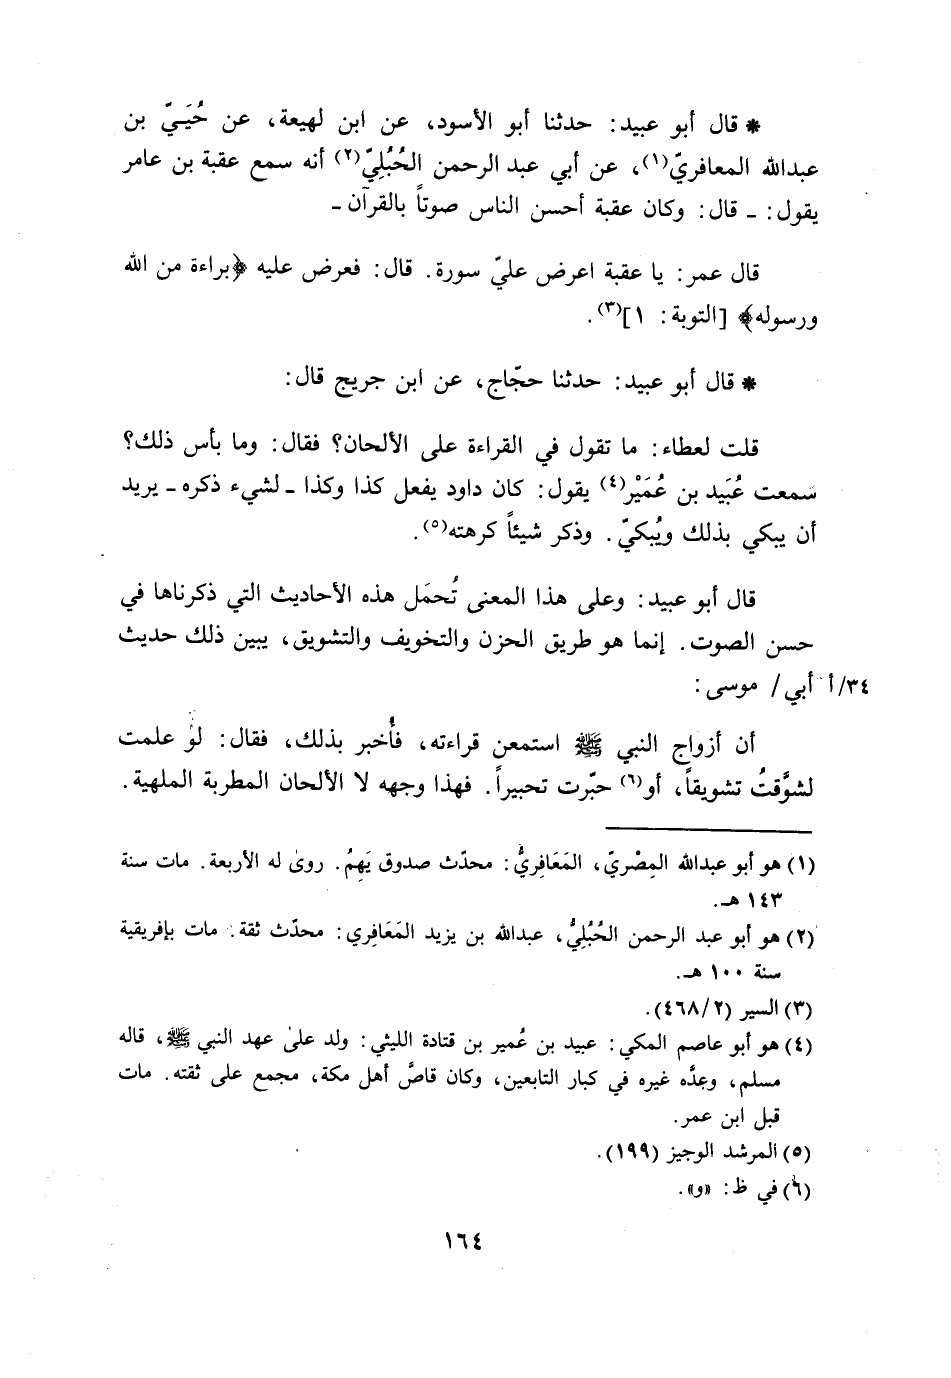 * قال أبو عبيد: حدثنا أبو الأسود، عن ابن لهيعة، عن حُيَـيّ بن
عبدالله المعافريّ(١)، عن أبي عبد الرحمن الحُبُلِيّ(٢) أنه سمع عقبة بن عامر
يقول: ـ قال: وكان عقبة أحسن الناس صوتاً بالقرآن ـ
قال عمر: يا عقبة اعرض عليّ سورة. قال: فعرض عليه ﴿براءة من الله
ورسوله﴾ [التوبة: ١](٣).
* قال أبو عبيد: حدثنا حجّاج، عن ابن جريج قال:
قلت لعطاء: ما تقول في القراءة على الألحان؟ فقال: وما بأس ذلك؟
سمعت عُبَيد بن عُمَيْر(٤) يقول: كان داود يفعل كذا وكذا ـ لشيء ذكره ـ يريد
أن يبكي بذلك ويُبكيّ. وذكر شيئاً كرهته(٥).
قال أبو عبيد: وعلى هذا المعنى تُحمَل هذه الأحاديث التي ذكرناها في
حسن الصوت. إنما هو طريق الحزن والتخويف والتشويق، يبين ذلك حديث
٣٤/أ أبي/ موسى:
أن أزواج النبي ﷺ استمعن قراءته، فأُخبر بذلك، فقال: لو علمت
لشوَّقتُ تشويقاً، أو(٦) حبّرت تحبيراً. فهذا وجهه لا الألحان المطربة الملهية.
(١) هو أبو عبدالله المِصْريّ، المَعَافِريُّ: محدّث صدوق يَهِمُ. روىٰ له الأربعة. مات سنة
١٤٣ هـ.
(٢) هو أبو عبد الرحمن الحُبُلِيُّ، عبدالله بن يزيد المَعَافِري: محدّث ثقة. مات بإفريقية
سنة ١٠٠ هـ.
(٣) السير (٤٦٨/٢).
(٤) هو أبو عاصم المكي: عبيد بن عُمير بن قتادة الليثي: ولد علىٰ عهد النبي ﷺ، قاله
مسلم، وعدَّه غيره في كبار التابعين، وكان قاصَّ أهل مكة، مجمع على ثقته. مات
قبل ابن عمر.
(٥) المرشد الوجيز (١٩٩).
(٦) في ظ: «و».
١٦٤